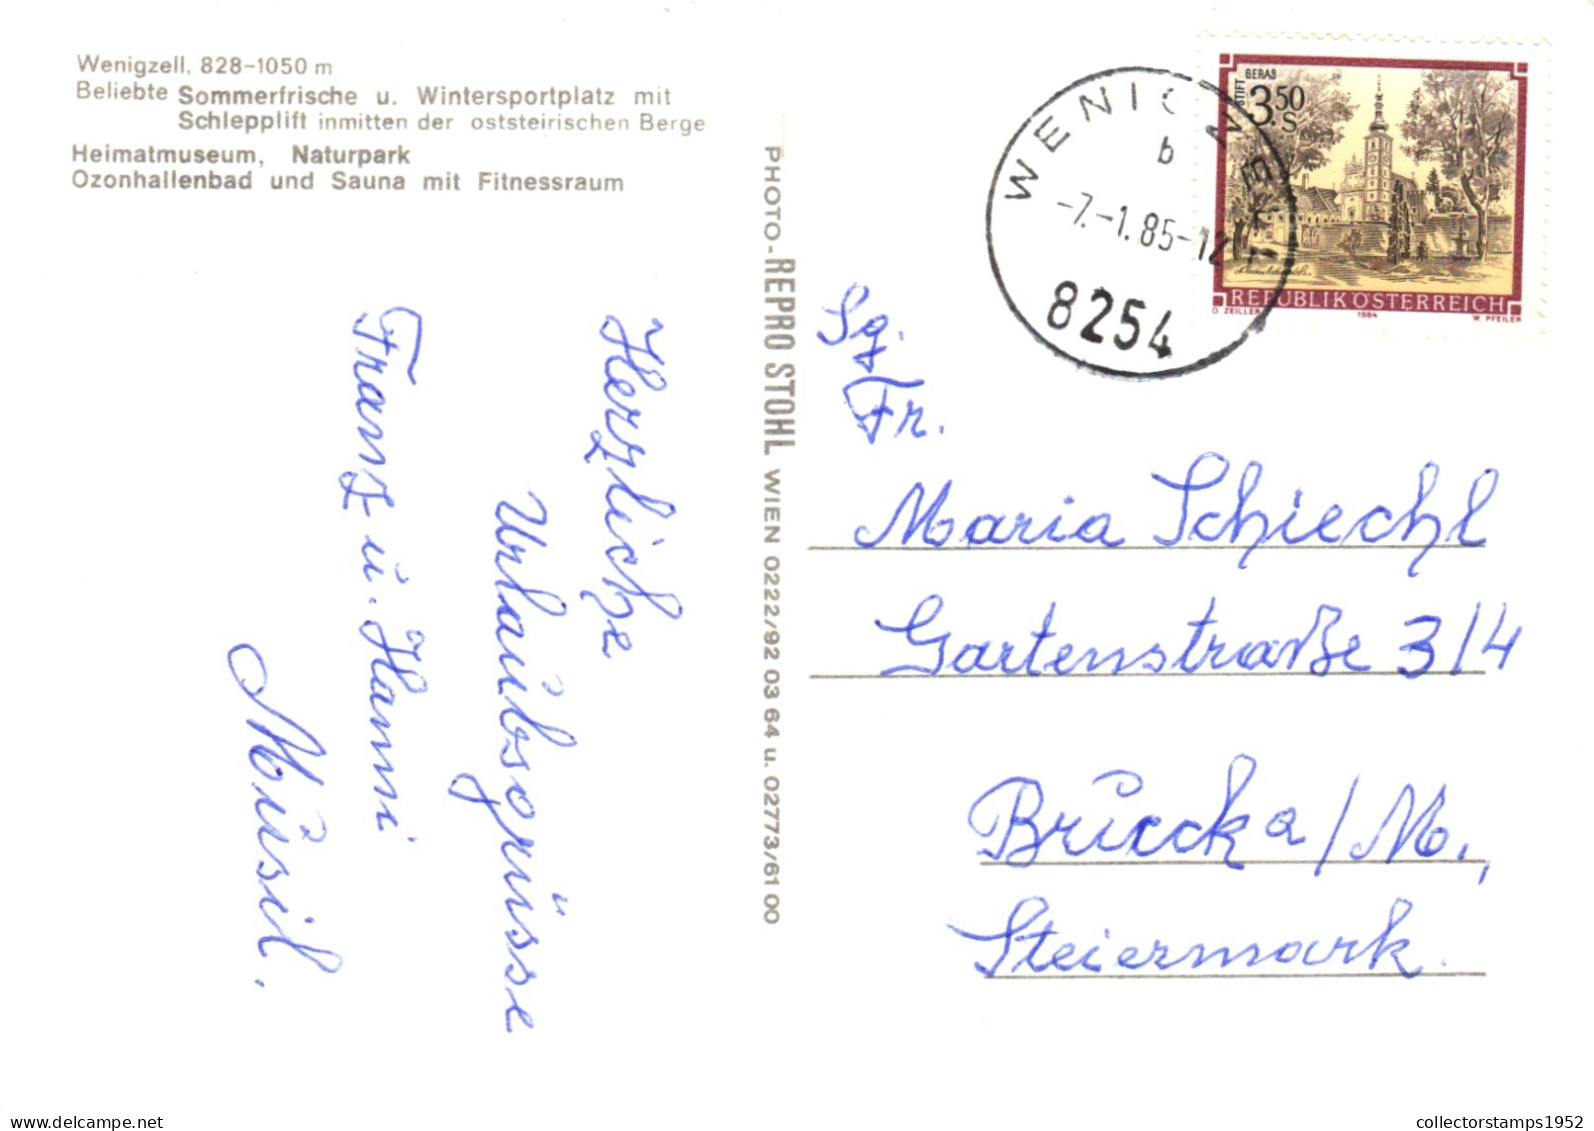 Wenigzell, 828-1050 m
Beliebte Sommerfrische u. Wintersportplatz mit
Schlepplift inmitten der oststeirischen Berge
Heimatmuseum, Naturpark
Ozonhallenbad und Sauna mit Fitnessraum
Herzliche
Urlaubsgrüsse
Franz u. Hanni
Musil.
PHOTO-REPRO STOHL WIEN 0222/92 03 64 u. 02773/61 00
WENIG
b
-7.-1.85-12
8254
STIFT GERAS
3.50
S
REPUBLIK ÖSTERREICH
O. ZEILLER 1984 W. PFEILER
Sg.
Fr.
Maria Schiechl
Gartenstraße 3/4
Bruck a/M.,
Steiermark.
collectorstamps1952